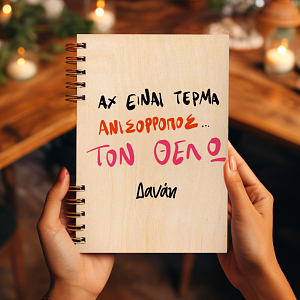 ΑΧ ΕΙΝΑΙ ΤΕΡΜΑ
ΑΝΙΣΟΡΡΟΠΟΣ...
ΤΟΝ ΘΕΛΩ
Δανάη